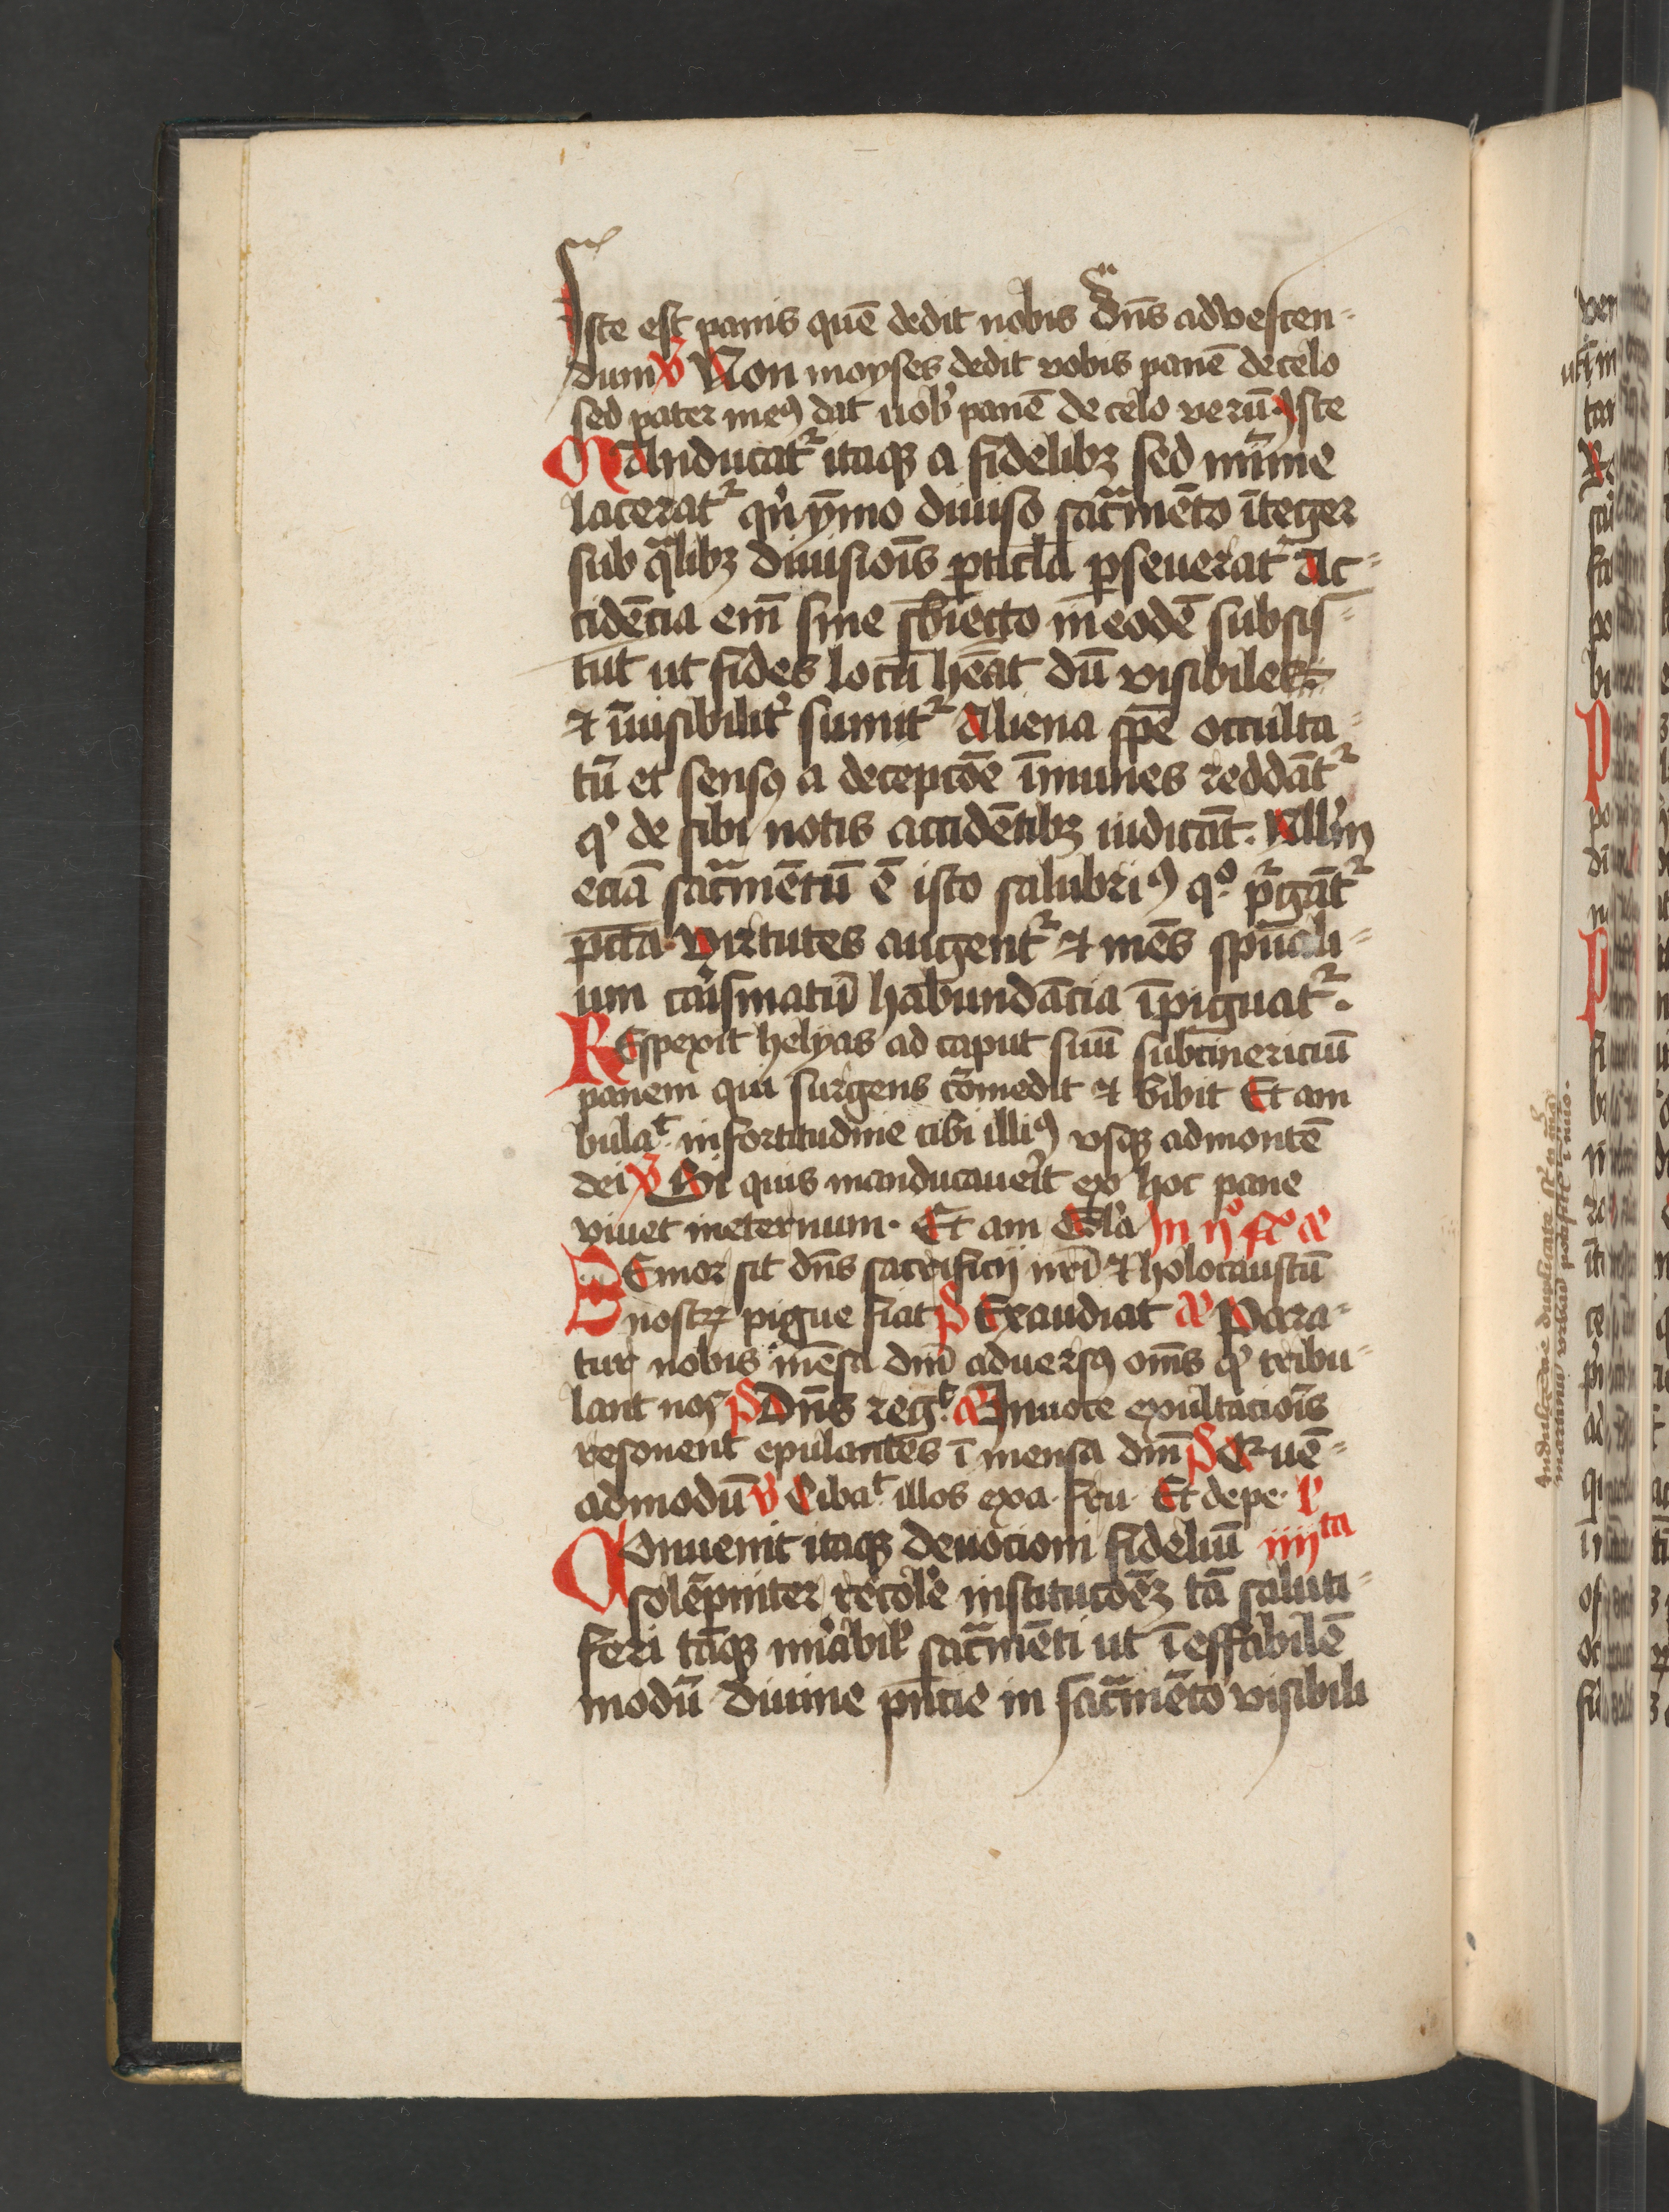 Iste est panis quē dedit nobis dn̄s ad vescen-
dum ℣ Non moyses dedit vobis panē de celo
sed pater meꝰ dat uob̛ panē de celo verū. Iste
Manducat᷑ itaqꝫ a fidelibꝫ sed mīme
lacerat᷑ qͥnymo diuiso sacᷓmēto īteger
sub qᷓlibꝫ diuisiōis ꝑticl̄a ꝑseuerat Ac-
cidēcia em̄ sine sb̄iecto in eodē subsis-
tūt ut fides locū hēat dū visibile
⁊ īuisibilit̛ sumit᷑ Aliena spē occulta-
tū et sensꝰ a decepcōe īmunes reddāt᷑
qͥ de sibi notis accidētibꝫ iudicāt. Null̛m
eciā sacᷓmentū ē isto salubriꝰ qͦ pᷣgāt᷑
pcc̄a. virtutes augent᷑ ⁊ mēs spūali-
um carismatū habundācia īpiguat᷑.
Respexit helyas ad caput suū subcinericiū
panem qui surgens cōmedit ⁊ bibit Et am
bulaᵗ. in fortitudine cibi illiꝰ vsqꝫ ad montē
dei ℣ Si quis manducauer̛t ex hoc pane
viuet in eternum. Et am Gl̛a In ijͦ nͦ a͞
Memor sit dn̄s sacrificij nr̄i ⁊ holocaustū
nostrꝫ pigue fiat p̄s Exaudiat a͞ Para-
tur nobis mēsa dn̄i aduersꝰ om̄s qͥ tribu-
lant nos p̄s Dn̄s regᵗ. a͞ In uoce exultaciōis
resonent epulantes ī mensa dn̄i p̄s Quē-
admodū ℣ Cibaᵗ. illos ex a. fru Et de pe. l̄c
Conuenit itaqꝫ deuocioni fideliū iiijᵗᵃ
solēpniter recol̛e institucōeꝫ tā saluti-
feri tāqꝫ mīabil̛ sacᷓmēti ut īeffabilē
modū diuine pn̄cie in sacᷓmēto visibili